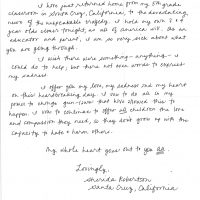 I have just returned home from my 5th grade
classroom in Santa Cruz, California, to the devastating
news of the unspeakable tragedy. I hold my own 2 & 4
year olds closer tonight, as all of America will. As an
educator and parent, I am so very sick about what
you are going through.
I wish there were something - anything - I
could do to help, but there are not even words to express
my sadness.
I offer you my love, my sadness and my heart
on this heartbreaking day. I vow to do all in my
power to change gun-laws that have allowed this to
happen. I vow to continue to offer all children the love
and compassion they need, so they don't grow up with the
capacity to hate & harm others.
My whole heart goes out to you all.
Lovingly,
Robertson
Santa Cruz, California